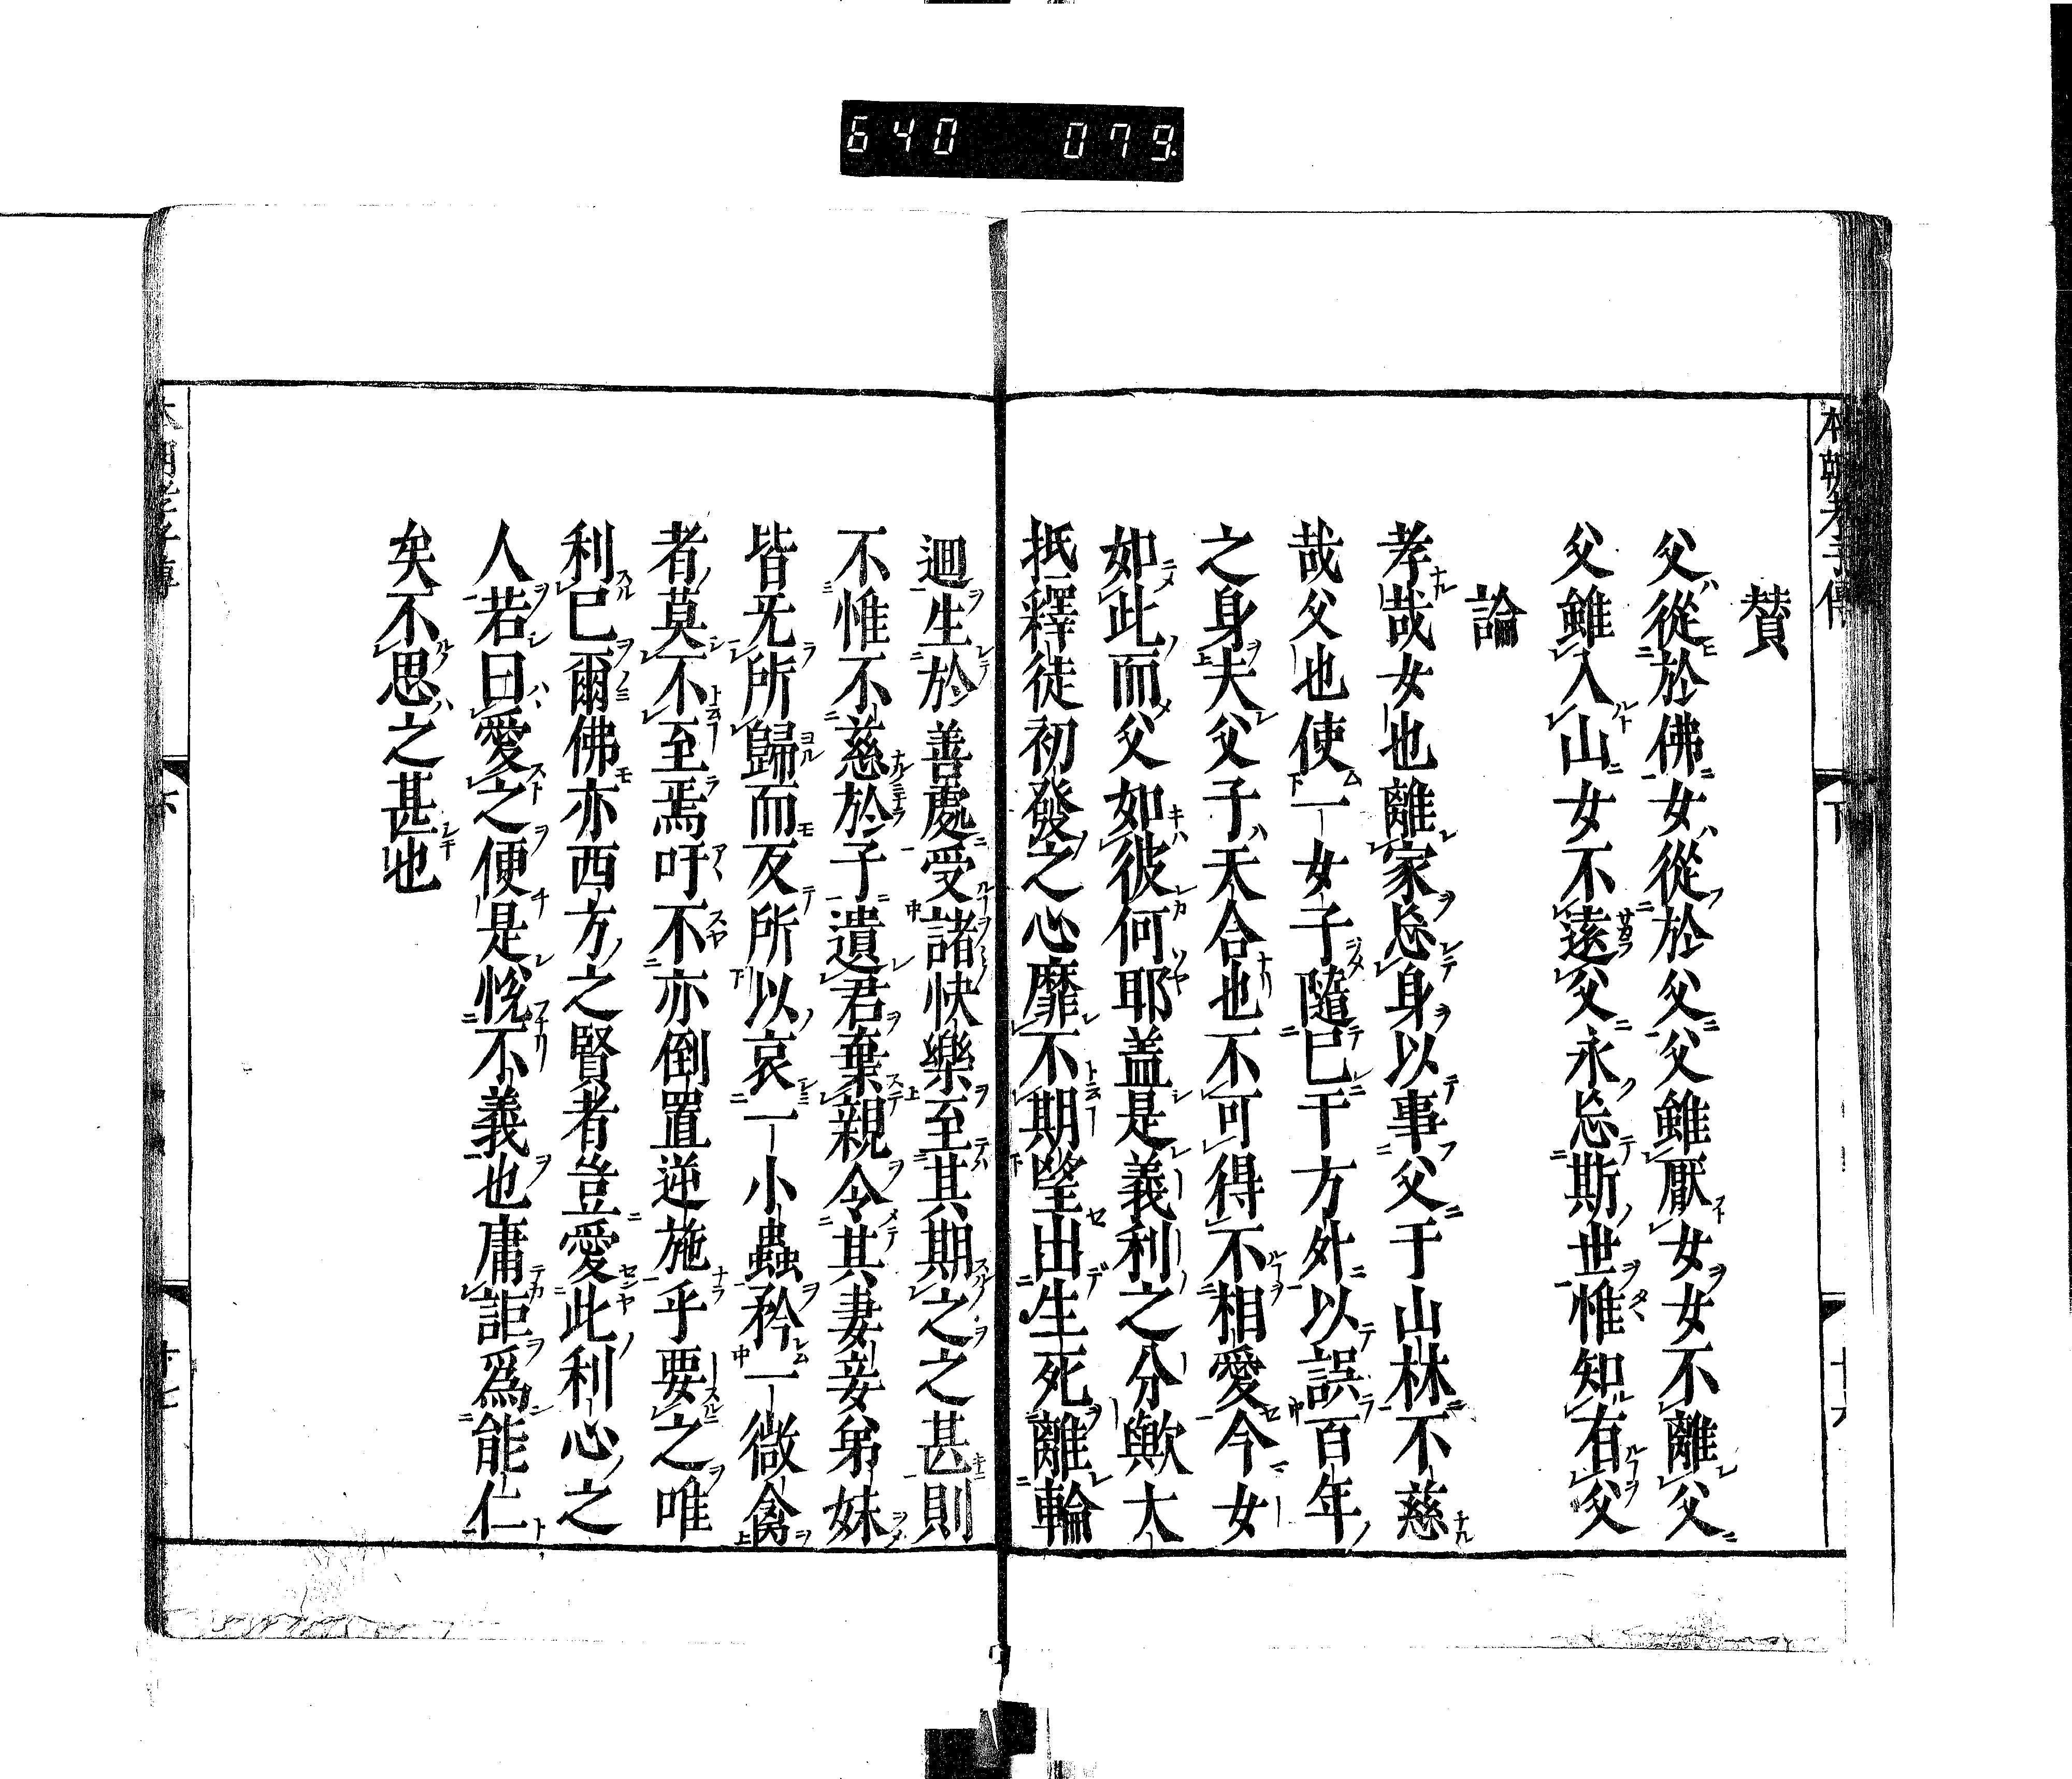 640 079
本朝孝子傳 下
賛
父從於佛女從於父父雖厭女女不離父
父雖入山女不遠父永忘斯世惟知有父
論
孝哉女也離家忘身以事父于山林不慈
哉父也使一女子隨已于方外以誤百年
之身夫父子天合也不可得不相愛今女
如此而父如彼何耶盖是義利之分歟大
抵釋徒初發之心靡不期望出生死離輪
迴生於善處受諸快樂至其期之之甚則
不惟不慈於子遺君棄親令其妻妾弟妹
皆无所歸而反所以哀一小蟲矜一微禽
者莫不至焉吁不亦倒置逆施乎要之唯
利已爾佛亦西方之賢者豈愛此利心之
人若曰愛之便是悅不義也庸詎爲能仁
矣不思之甚也